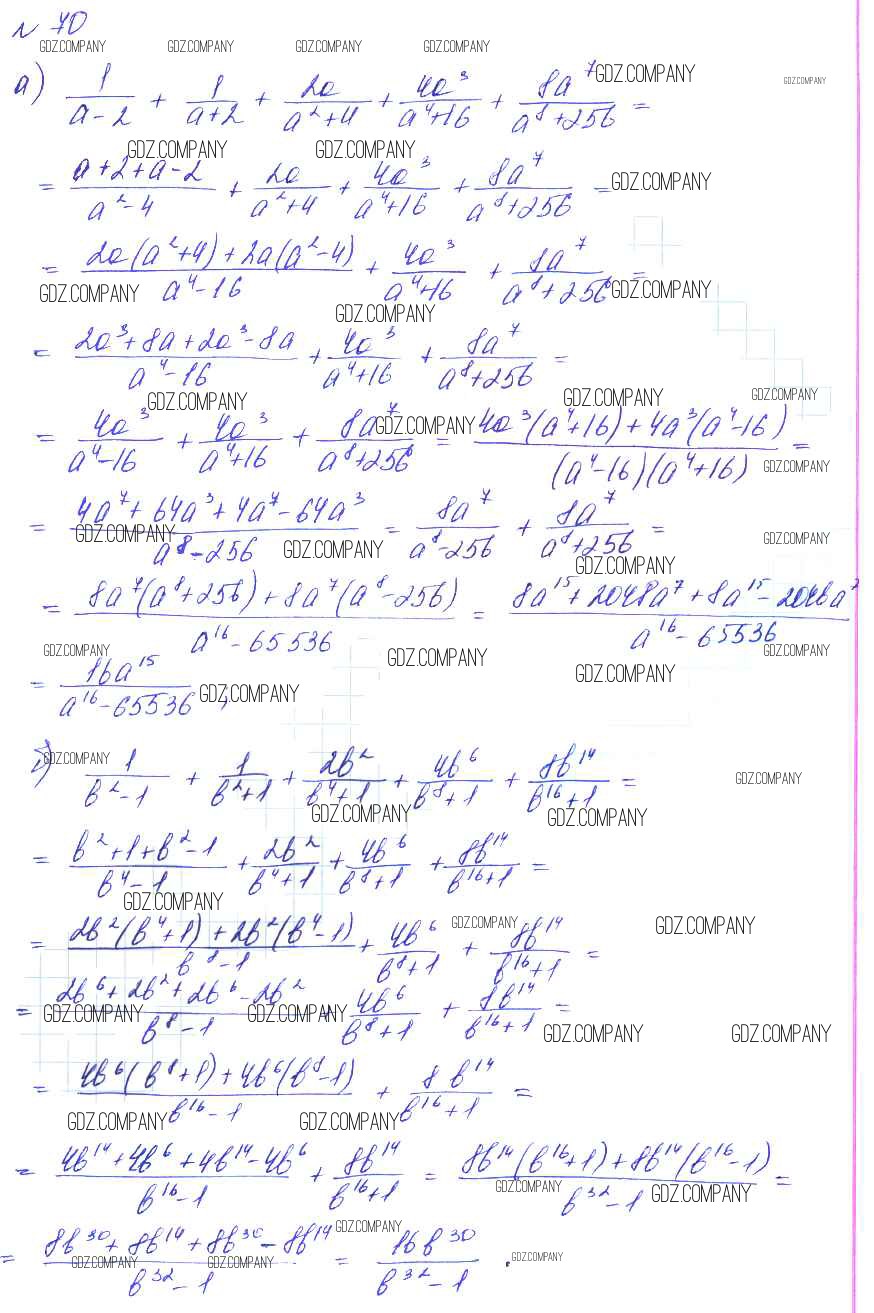 № 70
GDZ.COMPANY GDZ.COMPANY GDZ.COMPANY GDZ.COMPANY
GDZ.COMPANY GDZ.COMPANY
а) 1/(a-2) + 1/(a+2) + 2a/(a²+4) + 4a³/(a⁴+16) + 8a⁷/(a⁸+256) =
GDZ.COMPANY GDZ.COMPANY
= (a+2+a-2)/(a²-4) + 2a/(a²+4) + 4a³/(a⁴+16) + 8a⁷/(a⁸+256) =
GDZ.COMPANY
= (2a(a²+4)+2a(a²-4))/(a⁴-16) + 4a³/(a⁴+16) + 8a⁷/(a⁸+256) =
GDZ.COMPANY GDZ.COMPANY
GDZ.COMPANY
= (2a³+8a+2a³-8a)/(a⁴-16) + 4a³/(a⁴+16) + 8a⁷/(a⁸+256) =
GDZ.COMPANY GDZ.COMPANY GDZ.COMPANY
= 4a³/(a⁴-16) + 4a³/(a⁴+16) + 8a⁷/(a⁸+256) = (4a³(a⁴+16)+4a³(a⁴-16))/((a⁴-16)(a⁴+16)) =
GDZ.COMPANY GDZ.COMPANY
= (4a⁷+64a³+4a⁷-64a³)/(a⁸-256) = 8a⁷/(a⁸-256) + 8a⁷/(a⁸+256) =
GDZ.COMPANY GDZ.COMPANY GDZ.COMPANY
GDZ.COMPANY
= (8a⁷(a⁸+256)+8a⁷(a⁸-256))/(a¹⁶-65536) = (8a¹⁵+2048a⁷+8a¹⁵-2048a⁷)/(a¹⁶-65536)
GDZ.COMPANY GDZ.COMPANY GDZ.COMPANY
GDZ.COMPANY
= 16a¹⁵/(a¹⁶-65536);
GDZ.COMPANY
GDZ.COMPANY GDZ.COMPANY
б) 1/(b²-1) + 1/(b²+1) + 2b²/(b⁴+1) + 4b⁶/(b⁸+1) + 8b¹⁴/(b¹⁶+1) =
GDZ.COMPANY GDZ.COMPANY
= (b²+1+b²-1)/(b⁴-1) + 2b²/(b⁴+1) + 4b⁶/(b⁸+1) + 8b¹⁴/(b¹⁶+1) =
GDZ.COMPANY
GDZ.COMPANY GDZ.COMPANY
= (2b²(b⁴+1)+2b²(b⁴-1))/(b⁸-1) + 4b⁶/(b⁸+1) + 8b¹⁴/(b¹⁶+1) =
= (2b⁶+2b²+2b⁶-2b²)/(b⁸-1) + 4b⁶/(b⁸+1) + 8b¹⁴/(b¹⁶+1) =
GDZ.COMPANY GDZ.COMPANY GDZ.COMPANY GDZ.COMPANY
= (4b⁶(b⁸+1)+4b⁶(b⁸-1))/(b¹⁶-1) + 8b¹⁴/(b¹⁶+1) =
GDZ.COMPANY GDZ.COMPANY
= (4b¹⁴+4b⁶+4b¹⁴-4b⁶)/(b¹⁶-1) + 8b¹⁴/(b¹⁶+1) = (8b¹⁴(b¹⁶+1)+8b¹⁴(b¹⁶-1))/(b³²-1) =
GDZ.COMPANY GDZ.COMPANY
GDZ.COMPANY
= (8b³⁰+8b¹⁴+8b³⁰-8b¹⁴)/(b³²-1) = 16b³⁰/(b³²-1).
GDZ.COMPANY GDZ.COMPANY GDZ.COMPANY